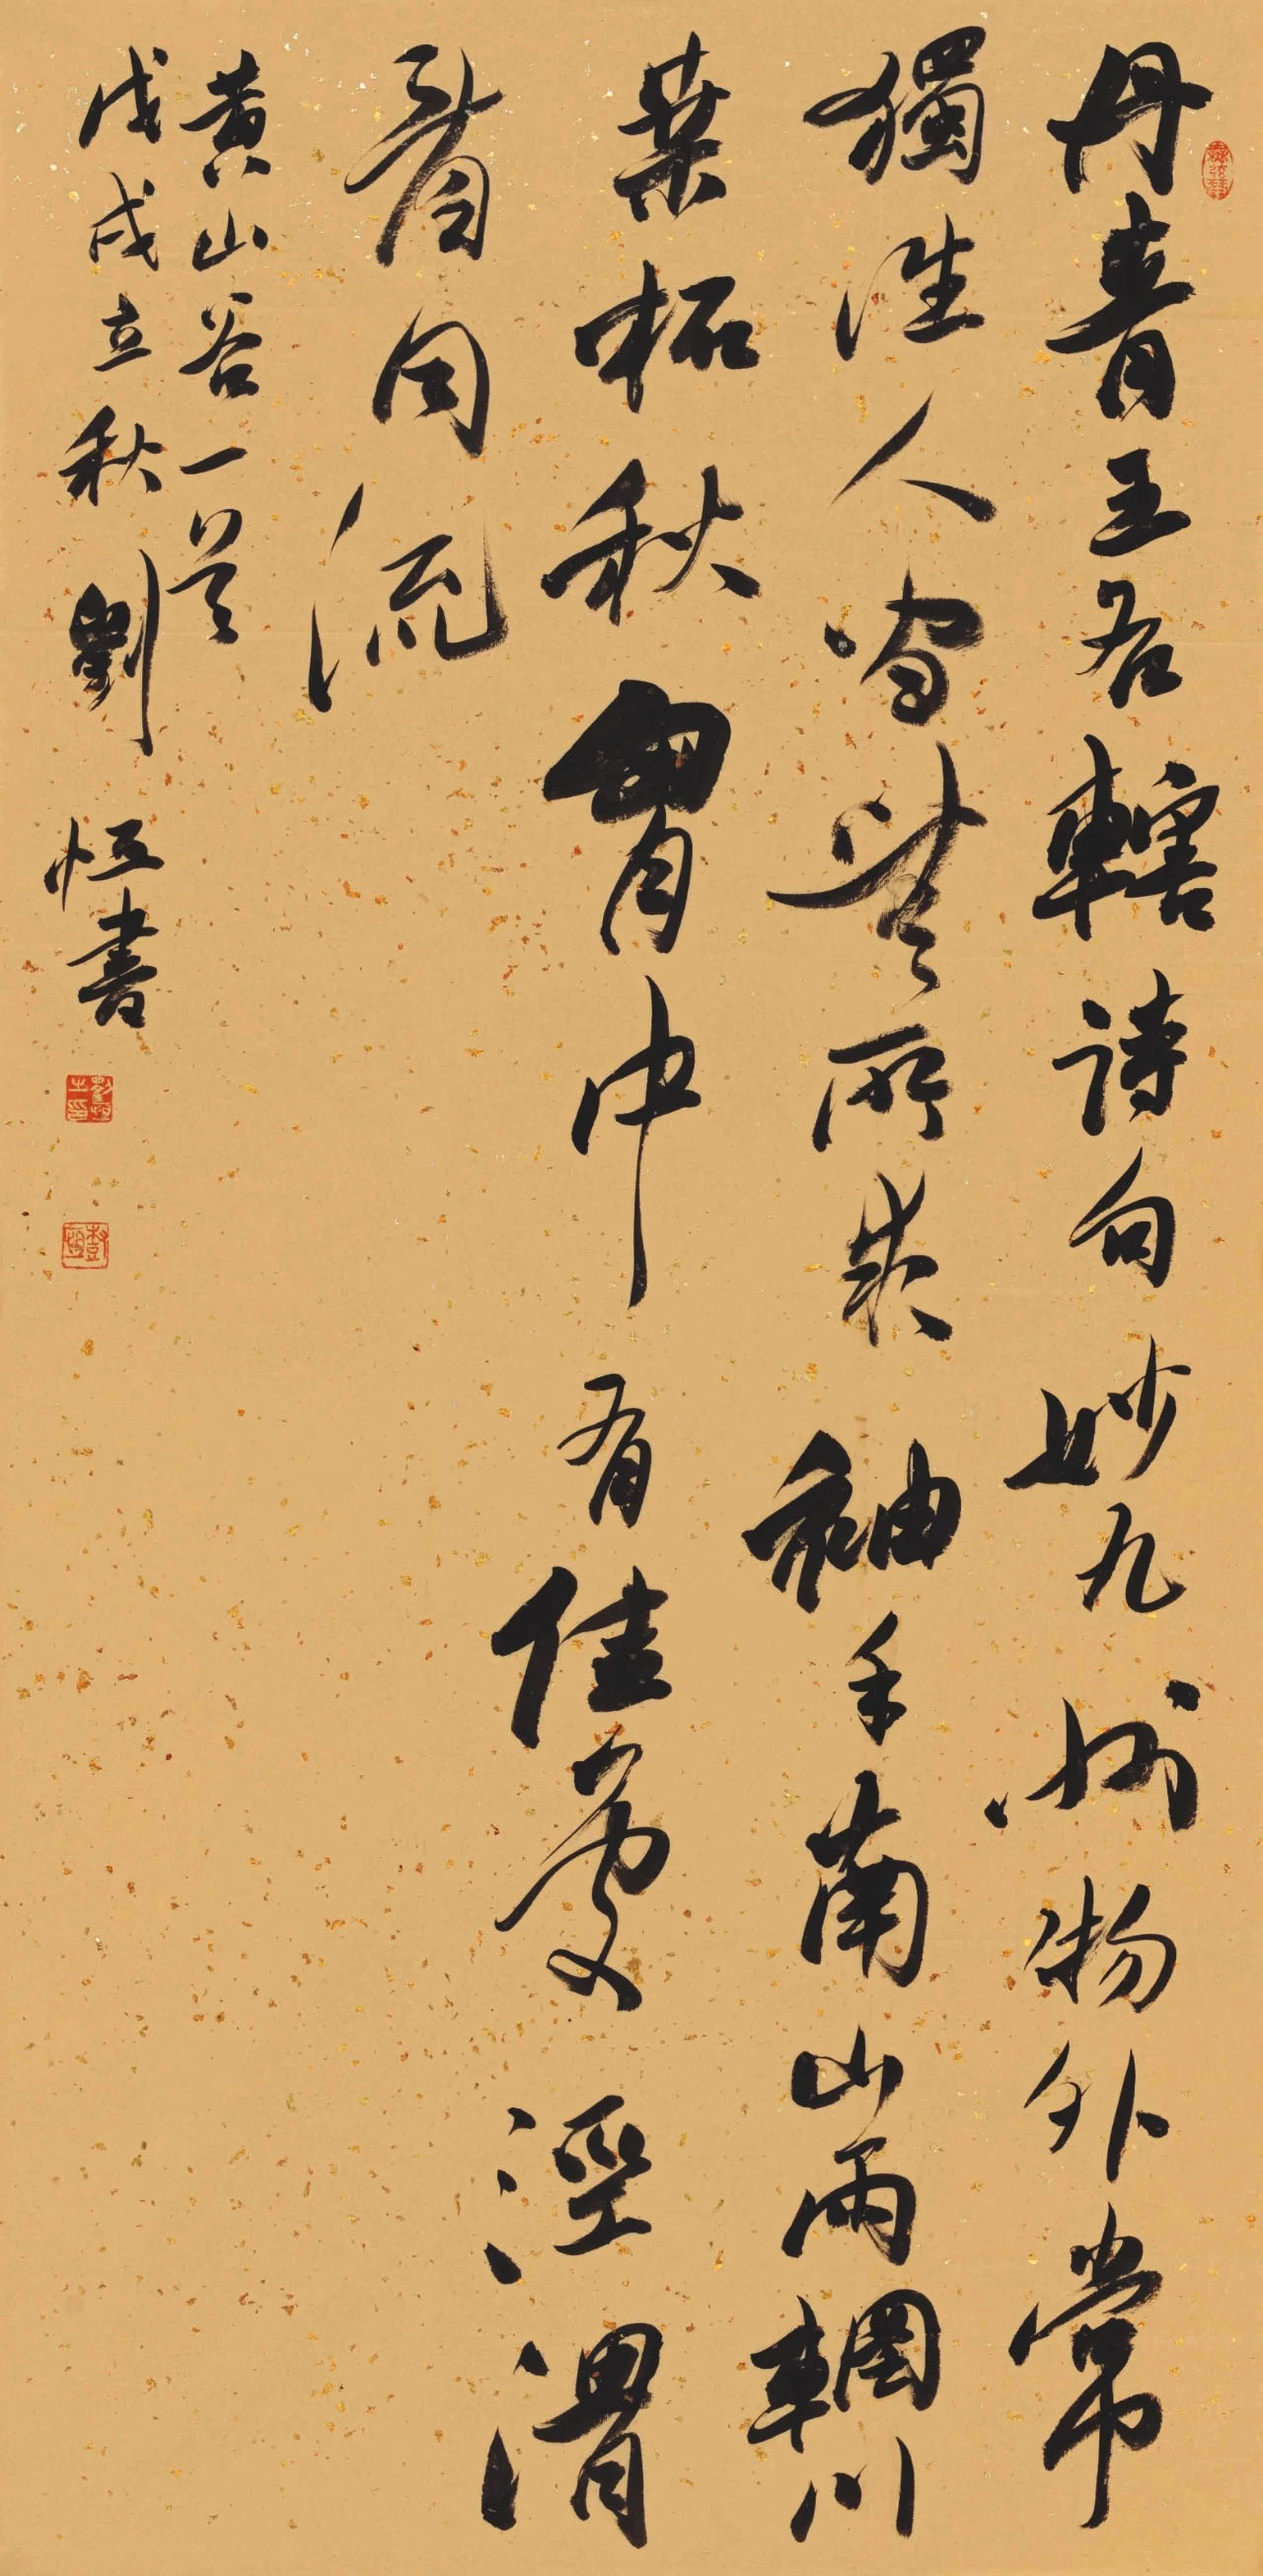 丹青王右轄詩句妙九州物外常
獨往人間無所求袖手南山雨輞川
桒柘秋胷中有佳處涇渭
看同流
黃山谷一首
戊戌立秋劉恒書
劉恒之印